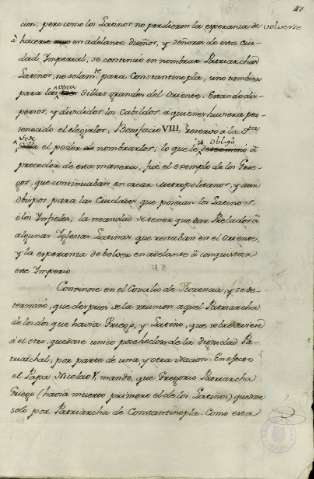 cion, pero como los Latinos no perdieron la esperanza de volverse
à hacerse en adelante dueños, y señores de esta Ciu-
dad Imperial, se continuò en nombrar Patriarchas
Latinos, no solamte. para Constantinopla, sino tambien
para las otras Sillas grandes del Oriente. Estando dis-
persos, y divididos los Cabildos à quienes huviera per-
tenecido el elegirlos, Bonifacio VIII, reservò a la Sta.
Sede el poder de nombrarlos; lo que le obligò à
proceder de esta manera, fuè el exemplo de los Grie-
gos, que continuaban en crear Metropolitanos, y aun
obispos para las Ciudades que poseian los Latinos, ò
los Infieles, la necesidad de tener que dar Prelados à
algunas Iglesias Latinas que restaban en el Oriente,
y la esperanza de bolver en adelante à conquistar
este Imperio
Convinose en el Concilio de Florencia, y se de-
terminò, que despues de la reunion aquel Patriarcha
de los dos que havia Griego, y Latino, que sobreviviese
à el otro quedase unico poseedor de la Dignidad Pa-
triarchal, por parte de una, y otra Nacion. En efecto
el Papa Nicolao V. mandò, que Gregorio Patriarcha
Griego (havia muerto primero el de los Latinos) quedase
solo por Patriarcha de Constantinopla. Como esta